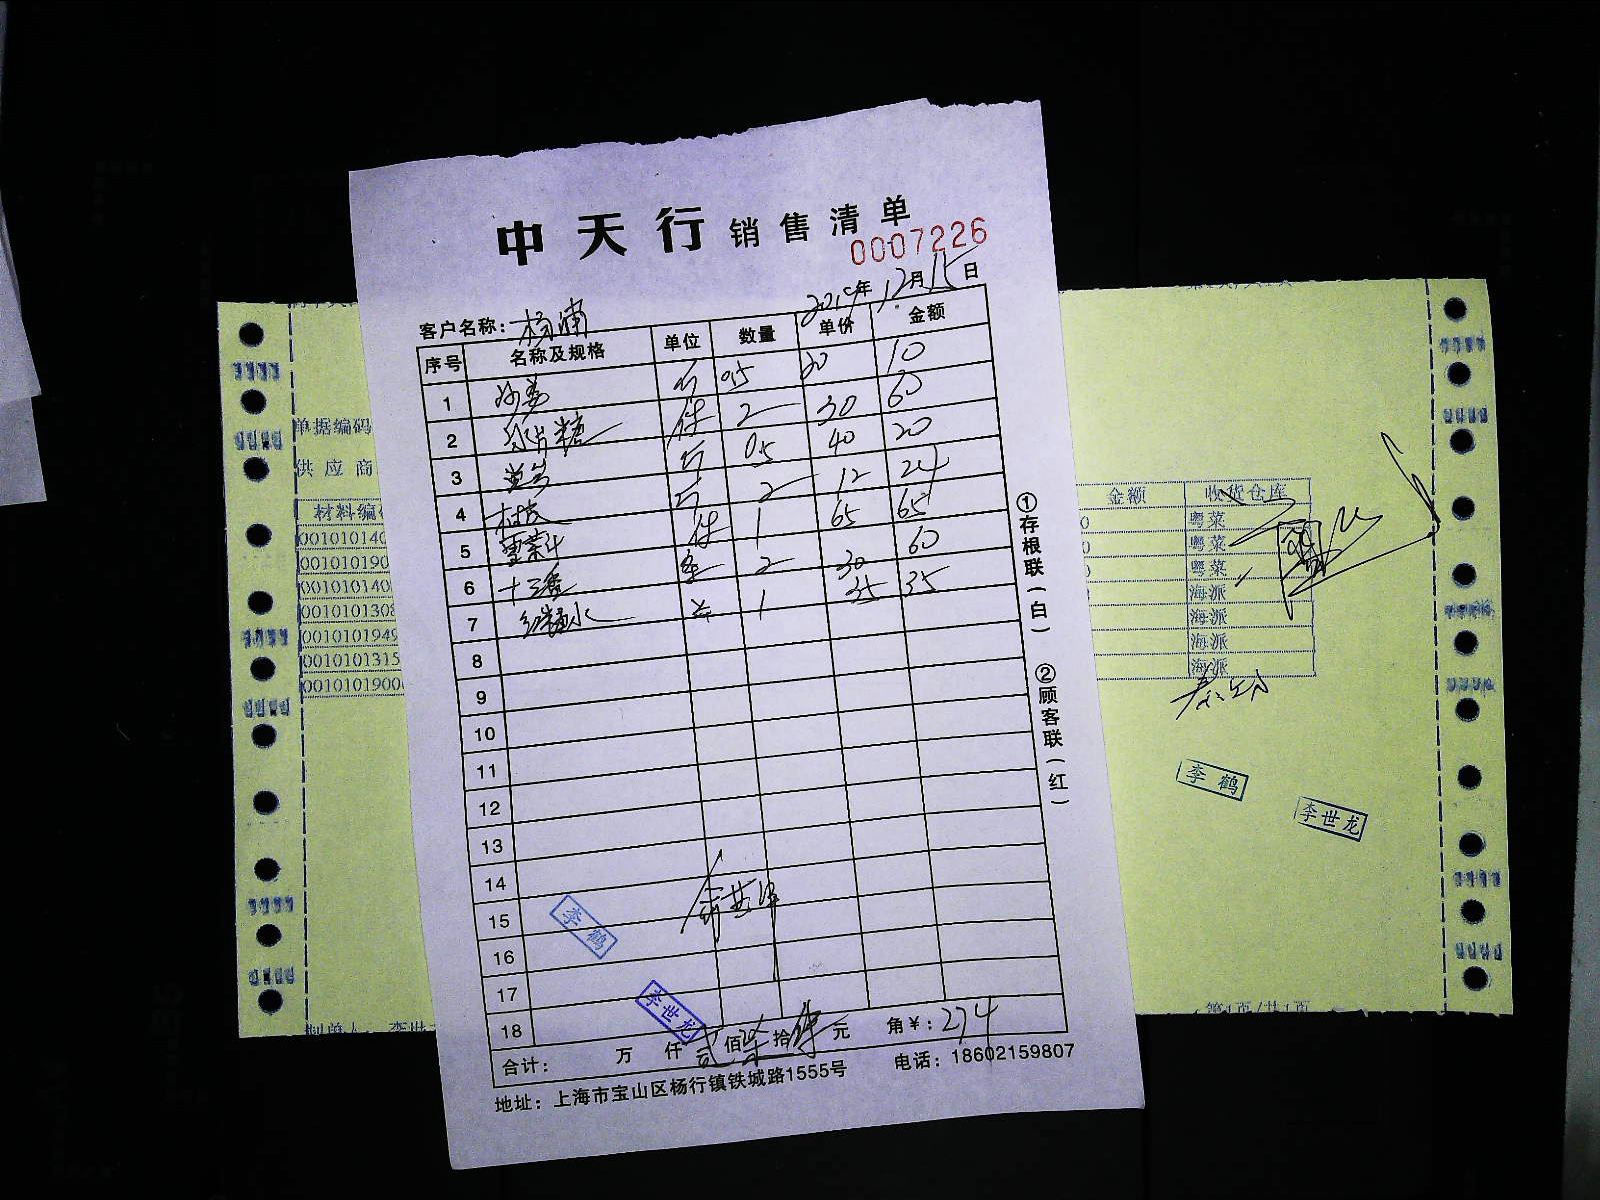 中天行 销售清单
0007226
2019年12月15日
客户名称：杨浦
序号 名称及规格 单位 数量 单价 金额
1 沙姜 斤 0.5 20 10
2 冰片糖 件 2 30 60
3 斤 0.5 40 20
4 斤 2 12 24
5 件 1 65 65
6 十三香 2 30 60
7 红糖水 1 35 35
8
9
10
11
12
13
14
15
16
17
18
李鹤
李世龙
合计： 万 仟 弍佰柒拾肆元 角 ¥：274
地址：上海市宝山区杨行镇铁城路1555号 电话：18602159807
①存根联（白） ②顾客联（红）
单据编码
供应商
材料编
001010140
001010190
001010140
001010130
0010101949
0010101315
001010190
制单人：李世
金额 收货仓库
粤菜
粤菜
粤菜
海派
海派
海派
海派
李鹤
李世龙
第1页/共1页